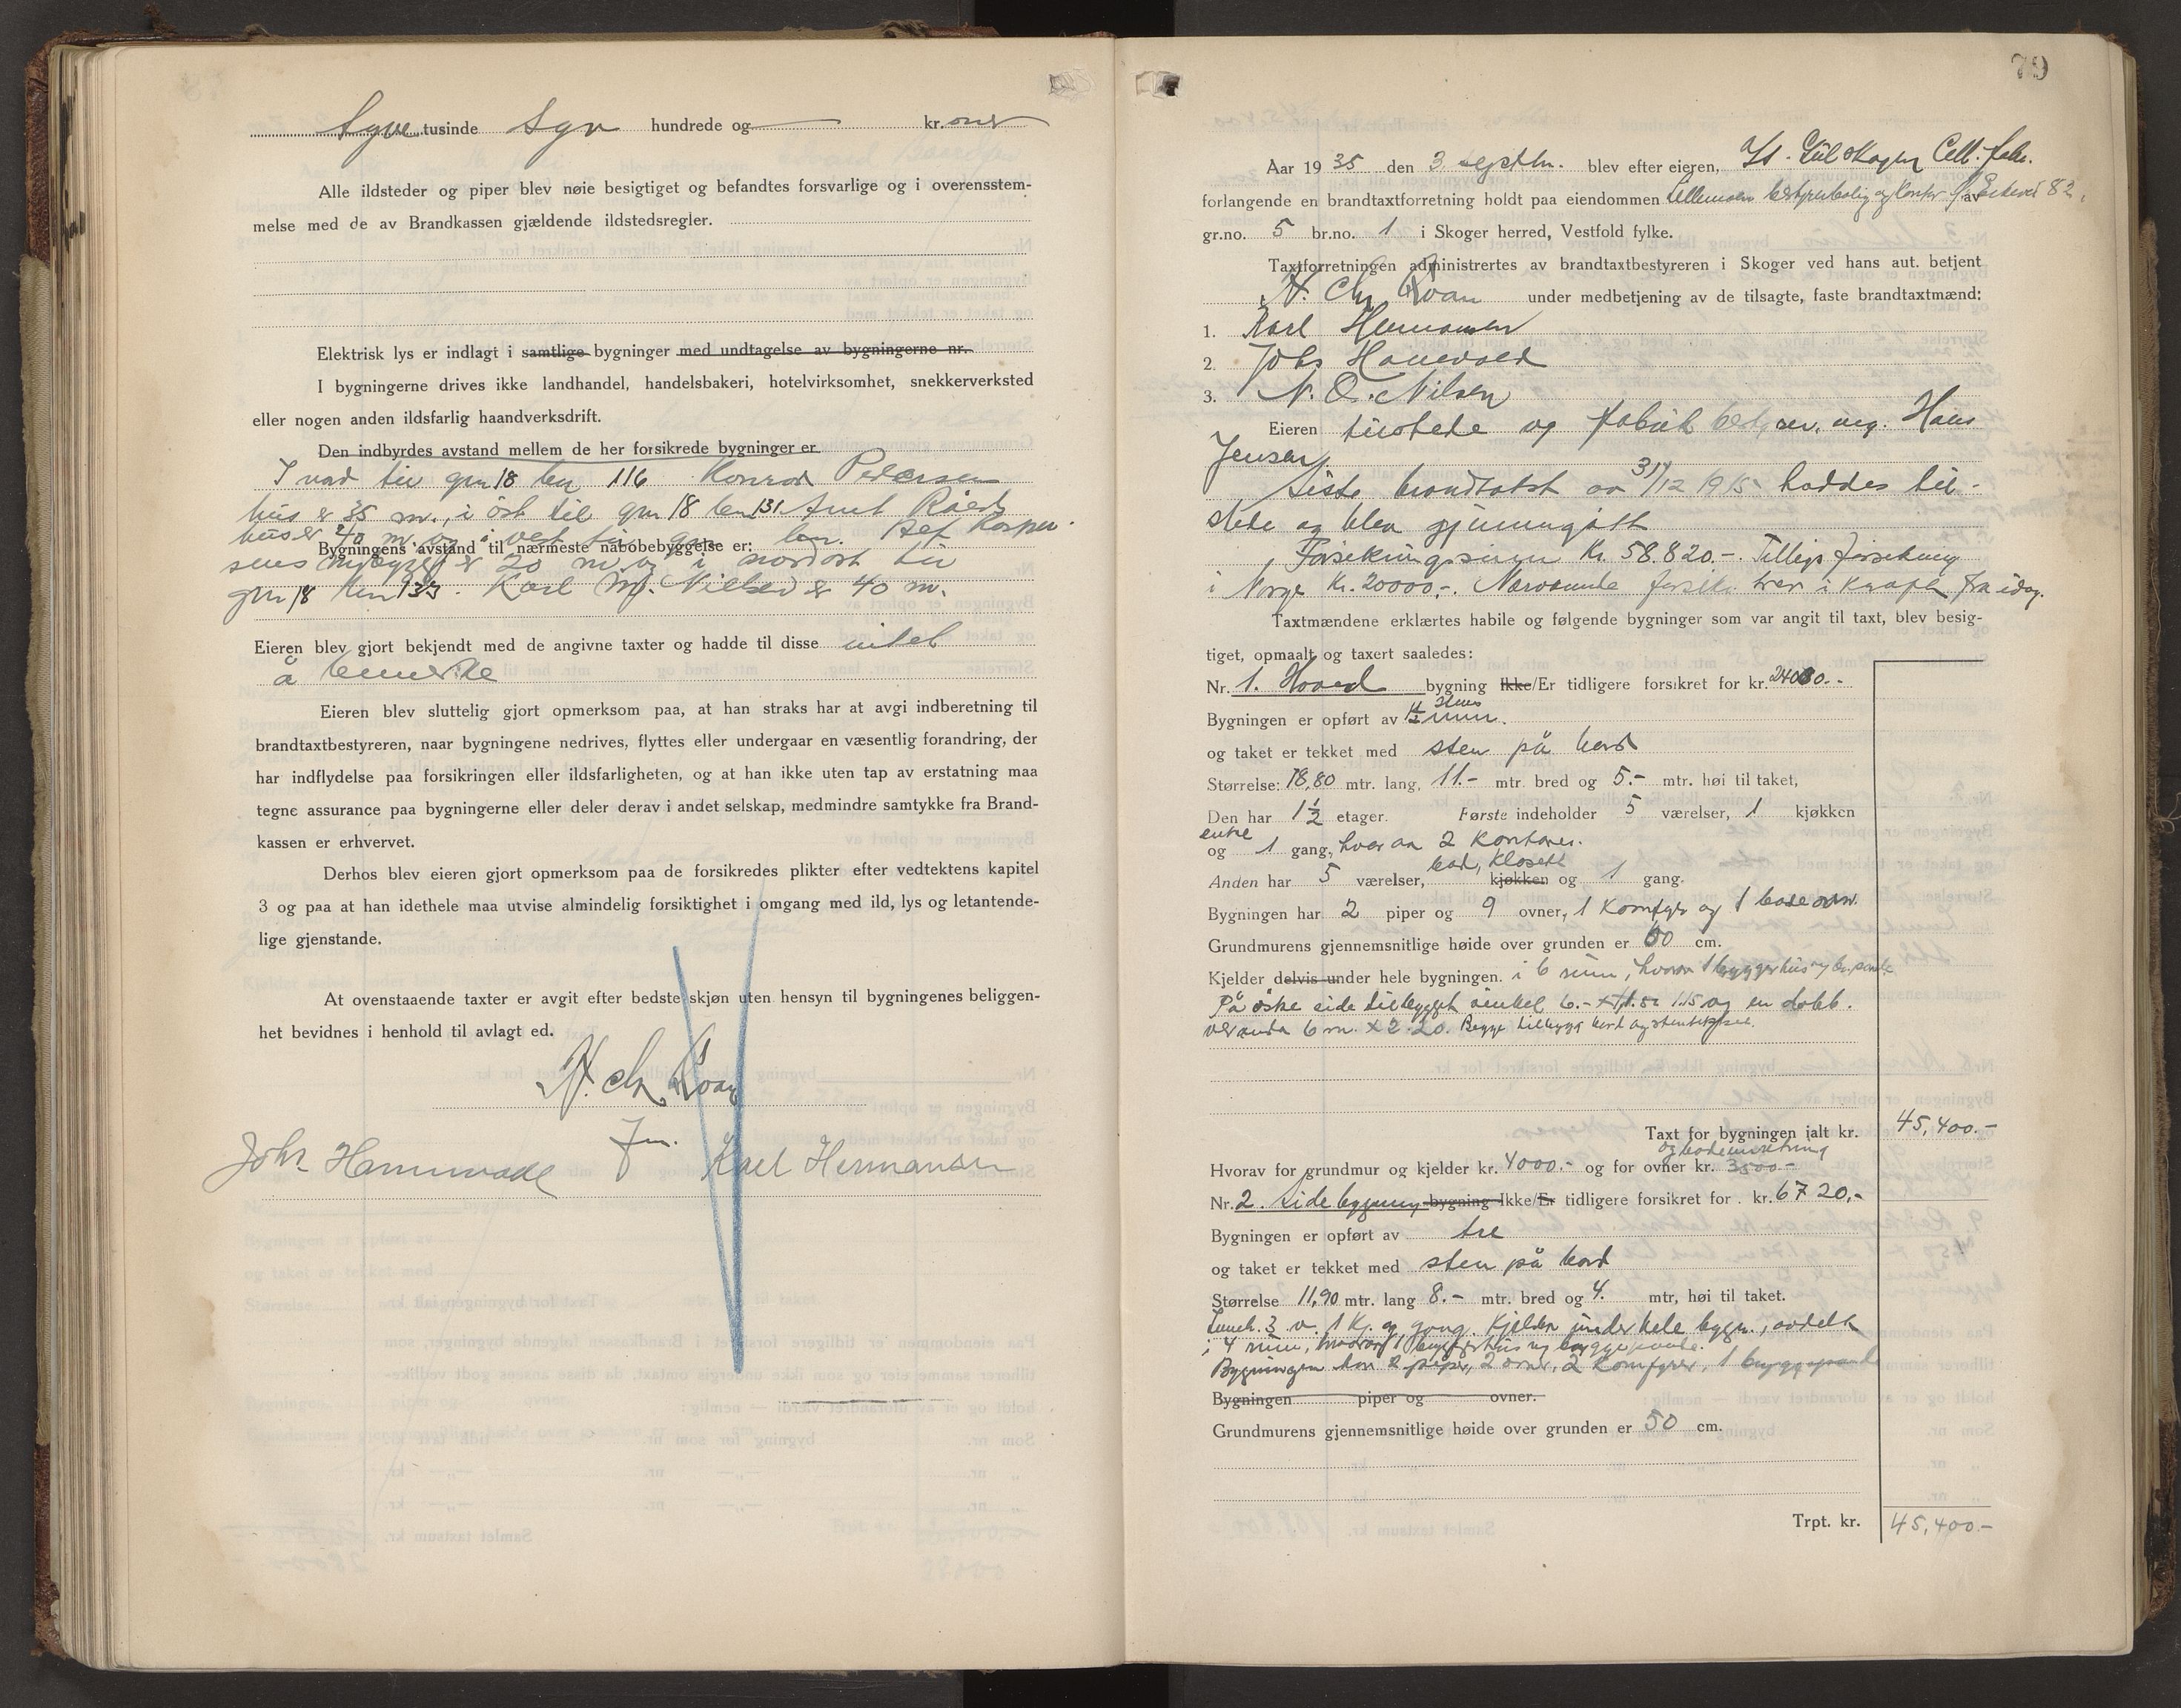 Syve tusinde Syv hundrede og — kr.oner
Alle ildsteder og piper blev nøie besigtiget og befandtes forsvarlige og i overensstem-
melse med de av Brandkassen gjældende ildstedsregler.
Elektrisk lys er indlagt i samtlige bygninger med undtagelse av bygningerne nr.
I bygningerne drives ikke landhandel, handelsbakeri, hotelvirksomhet, snekkerverksted
eller nogen anden ildsfarlig haandverksdrift.
Den indbyrdes avstand mellem de her forsikrede bygninger er
I nord til gnr 18 bnr 116 Konrad Pedersens
hus er 35 m., i öst til gnr 18 bnr 131
hus er 40 m. og i vest til gnr bnr.
Bygningens avstand til nærmeste nabobebyggelse er:
er 20 m og i nordost til
gnr 18 bnr 133. Karl M. Nilsen er 40 m.
Eieren blev gjort bekjendt med de angivne taxter og hadde til disse intet
å bemerke
Eieren blev sluttelig gjort opmerksom paa, at han straks har at avgi indberetning til
brandtaxtbestyreren, naar bygningene nedrives, flyttes eller undergaar en væsentlig forandring, der
har indflydelse paa forsikringen eller ildsfarligheten, og at han ikke uten tap av erstatning maa
tegne assurance paa bygningerne eller deler derav i andet selskap, medmindre samtykke fra Brand-
kassen er erhvervet.
Derhos blev eieren gjort opmerksom paa de forsikredes plikter efter vedtektens kapitel
3 og paa at han idethele maa utvise almindelig forsiktighet i omgang med ild, lys og letantende-
lige gjenstande.
At ovenstaaende taxter er avgit efter bedste skjøn uten hensyn til bygningenes beliggen-
het bevidnes i henhold til avlagt ed.
N. Chr. Roan
fm.
Johs Hannevold Karl Hermansen
79
Aar 1935 den 3 septbr. blev efter eieren, A/S Gulskogen Cell. fabr.
forlangende en brandtaxtforretning holdt paa eiendommen bestyrerbolig og kontor av
gr.no. 5 br.no. 1 i Skoger herred, Vestfold fylke.
Taxtforretningen administrertes av brandtaxtbestyreren i Skoger ved hans aut. betjent
N. Chr. Roan under medbetjening av de tilsagte, faste brandtaxtmænd:
1. Karl Hermansen
2. Johs Hannevold
3. N. O. Nilsen
Eieren tilstede og fabrikbestyrer, ing. Hans
Jensen
Siste brandtakst av 31/12 1915 haddes til-
stede og blev gjennemgått
Forsikringssum Kr. 58.820.-. Tilleggsforsikring
i Norge Kr. 20000,-. Nærværende forsikr. trer i kraft fra idag.
Taxtmændene erklærtes habile og følgende bygninger som var angit til taxt, blev besig-
tiget, opmaalt og taxert saaledes:
Nr. 1. Hoved bygning Ikke/Er tidligere forsikret for kr.
Bygningen er opført av
og taket er tekket med sten på bord
Størrelse: 18,80 mtr. lang, 11.- mtr. bred og 5.- mtr. høi til taket,
Den har 1½ etager. Første indeholder 5 værelser, 1 kjøkken
entre
og 1 gang, hvorav 2 kontorer.
bad, klosett
Anden har 5 værelser, kjøkken og 1 gang.
Bygningen har 2 piper og 9 ovner, 1 Komfyr og 1 badeovn.
Grundmurens gjennemsnitlige høide over grunden er 60 cm.
Kjelder delvis under hele bygningen. i 6 rum, hvorav 1 bryggerhus
På östre side tilbygget vinkel 6.- og en dobb.
veranda 6 m. x 2.20. Begge tilbygg bord og
Taxt for bygningen ialt kr. 45,400.-
og badeinnretning
Hvorav for grundmur og kjelder kr. 4000.- og for ovner kr. 3500-
Nr. 2. Sidebygning bygning Ikke/Er tidligere forsikret for . kr. 6720,-
Bygningen er opført av tre
og taket er tekket med sten på bord
Størrelse 11,90 mtr. lang 8.- mtr. bred og 4. mtr, høi til taket.
Inneh. 3 v. 1 Kj. og gang. Kjelder under hele bygn., avdelt
i 4 rum, hvorav 1 bryggerhus og bryggepande.
Bygningen har 2 piper, 2 ovner, 2 Komfyrer, 1 bryggepande
Bygningen piper og ovner.
Grundmurens gjennemsnitlige høide over grunden er 50 cm.
Trpt. kr. 45,400.-